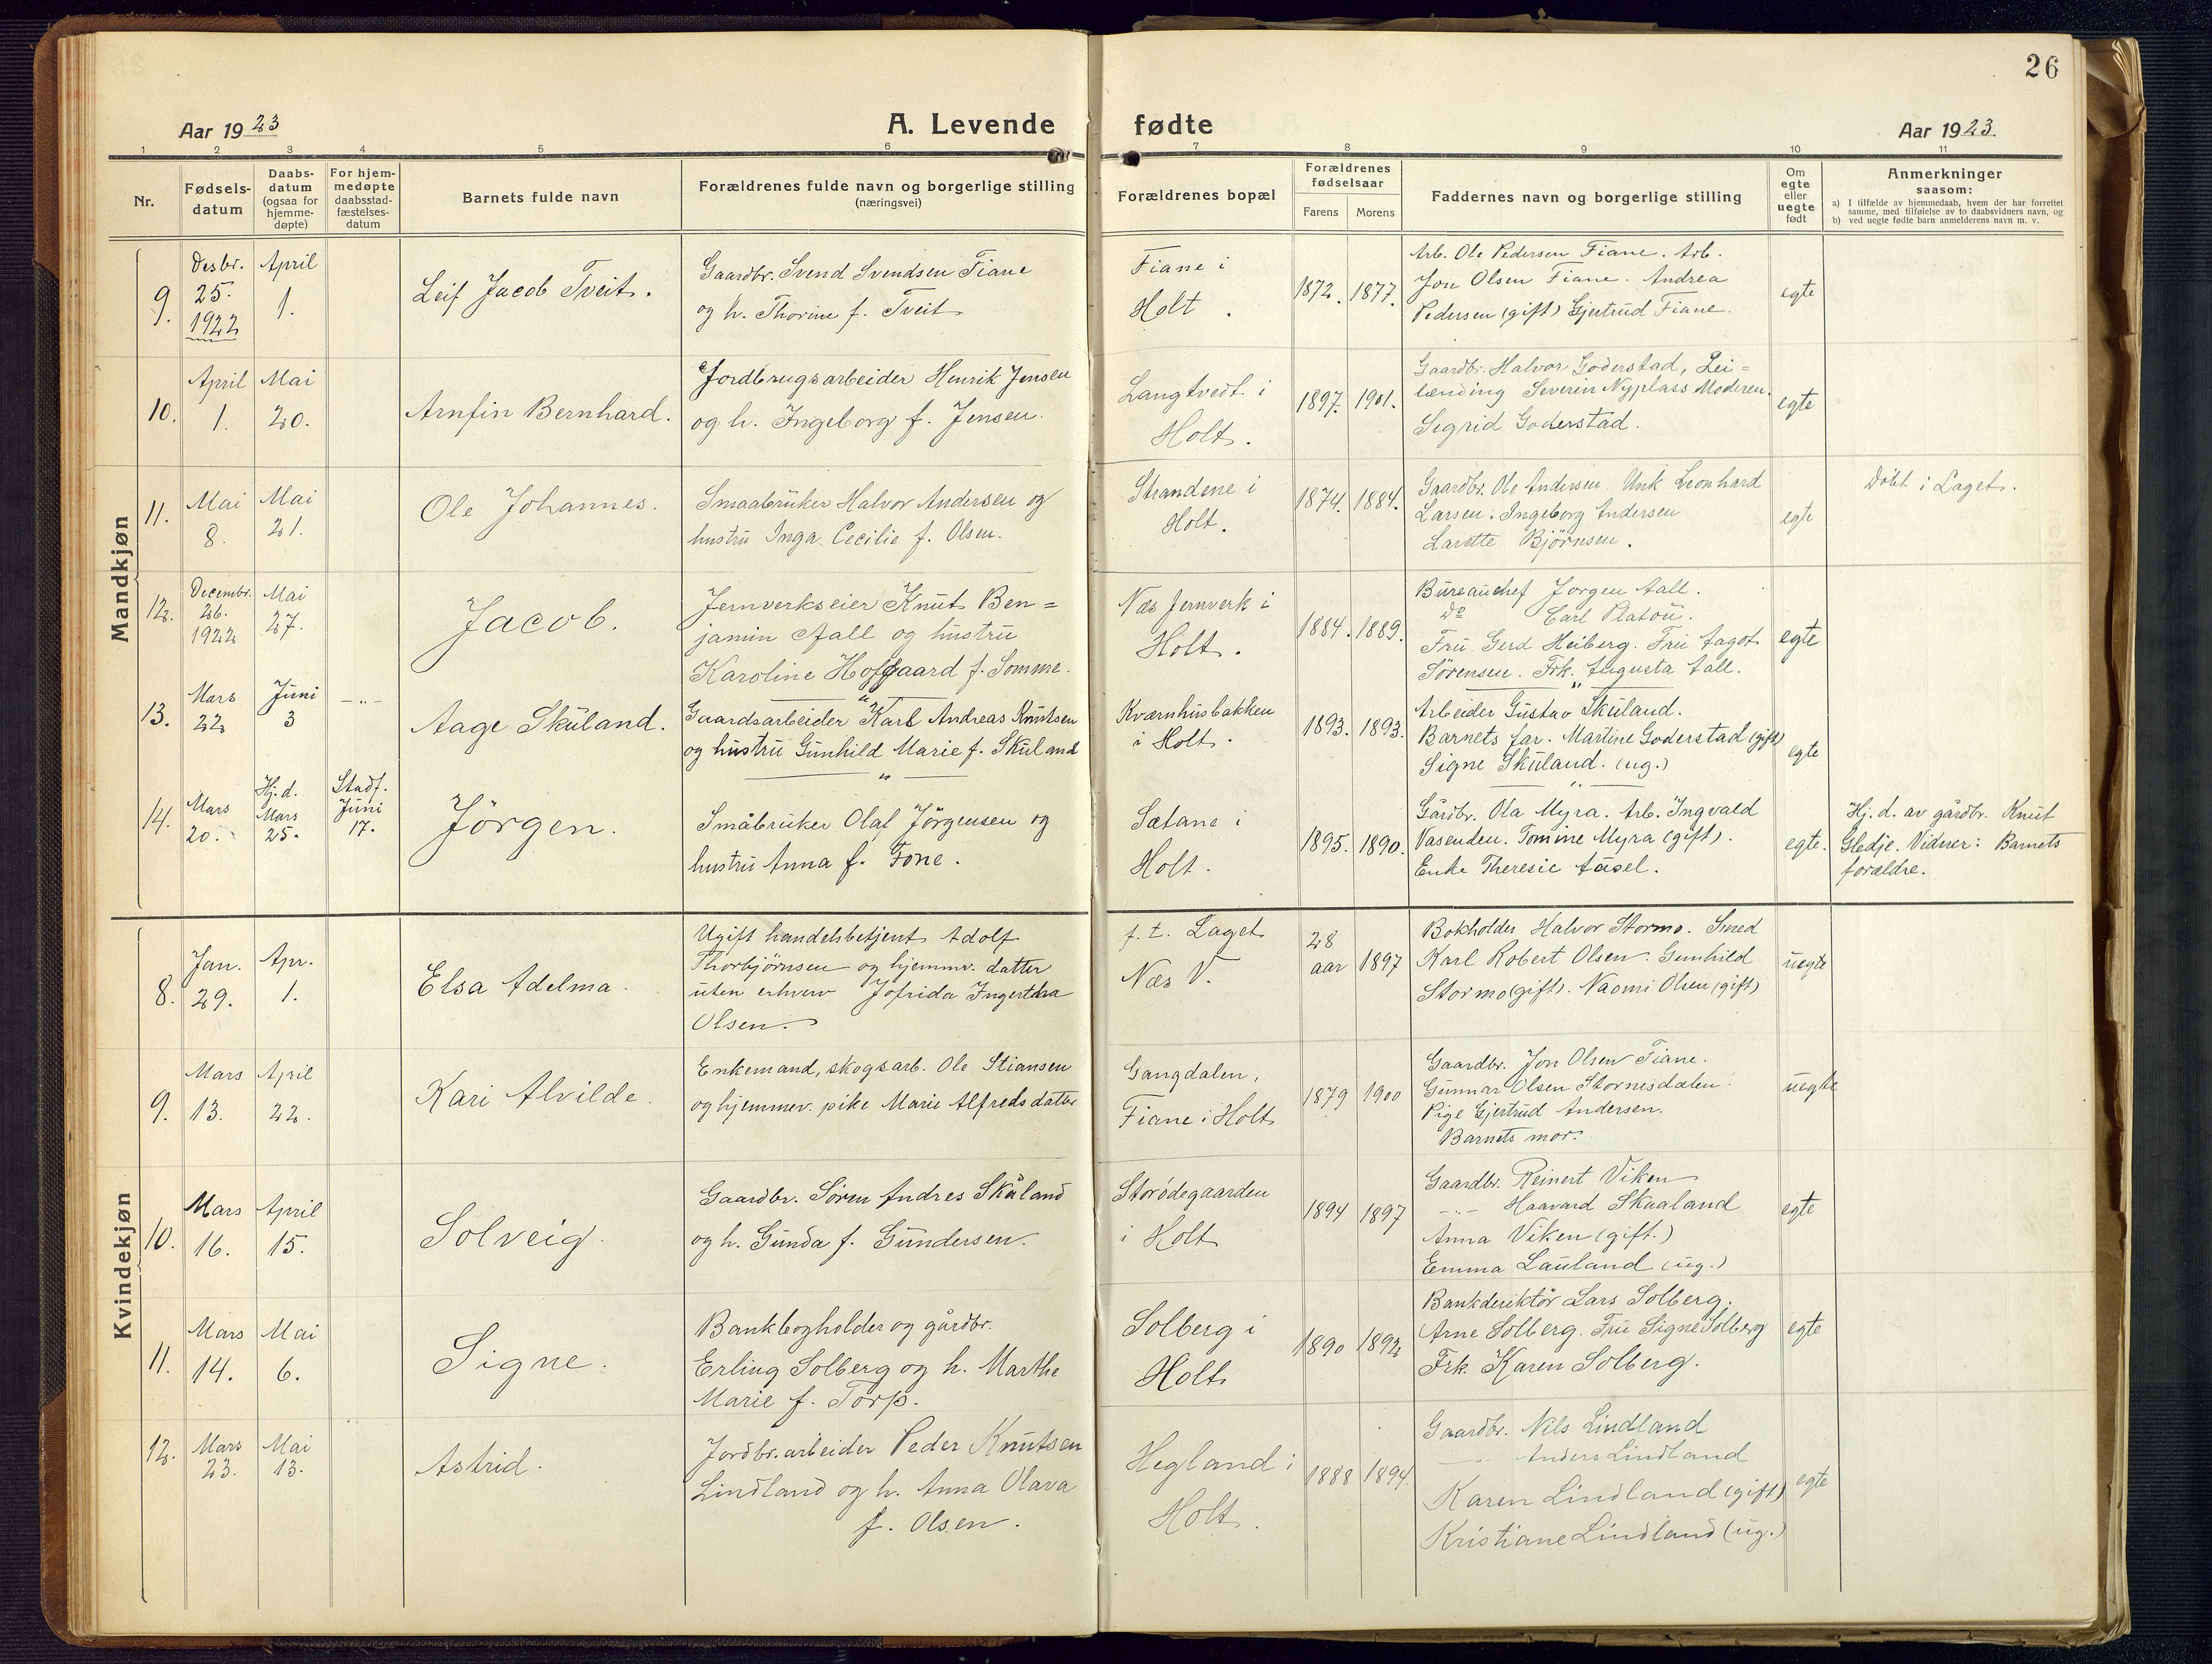 26
Aar 1923
A. Levende fødte
Aar 1923.
1 2 3 4 5 6 7 8 9 10 11
Nr.
Fødsels-
datum
Daabs-
datum
(ogsaa for
hjemme-
døpte)
For hjem-
medøpte
daabsstad-
fæstelses-
datum
Barnets fulde navn
Forældrenes fulde navn og borgerlige stilling
(næringsvei)
Forældrenes bopæl
Forældrenes
fødselsaar
Farens Morens
Faddernes navn og borgerlige stilling
Om
egte
eller
uegte
født
Anmerkninger
saasom:
a) I tilfælde av hjemmedaab, hvem der har forrettet
samme, med tilføielse av to daabsvidners navn, og
b) ved uegte fødte barn anmelderens navn m. v.
Mandkjøn
9.
Desbr.
25.
1922
April
1.
Leif Jacob Tveit.
Gaardbr. Svend Svendsen Fiane
og h. Thorine f. Tveit
Fiane i
Holt.
1872. 1877.
Arb. Ole Pedersen Fiane. Arb.
Jon Olsen Fiane. Andrea
Pedersen (gift) Gjertrud Fiane.
egte
10.
April
1.
Mai
20.
Arnfin Bernhard.
Jordbrugsarbeider Henrik Jensen
og h. Ingeborg f. Jensen.
Langtvedt i
Holt.
1897. 1901.
Gaardbr. Halvor Goderstad, Lei=
lænding Severin Nyplass Moderen.
Sigrid Goderstad.
egte
11.
Mai
8.
Mai
21.
Ole Johannes.
Smaabruker Halvor Andersen og
hustru Inga Cecilie f. Olsen.
Strandene i
Holt.
1874. 1884.
Gaardbr. Ole Andersen. Unk Leonhard
Larsen. Ingeborg Andersen
Larette Bjørnsen.
egte
Døbt i Laget.
12.
Decembr.
26.
1922
Mai
27.
Jacob.
Jernverkseier Knut Ben=
jamin Aall og hustru
Karoline Hofgaard f. Somme.
Næs Jernverk i
Holt.
1884. 1889.
Bureauchef Jørgen Aall.
Do Carl Platou.
Fru Gerd Heiberg. Fru Aagot
Sørensen. Frk. Augusta Aall.
egte
13.
Mars
22
Juni
3
-"-
Aage Skuland.
Gaardsarbeider Karl Andreas Knutsen
og hustru Gunhild Marie f. Skuland
Kværnhusbakken
i Holt.
1893. 1893.
Arbeider Gustav Skuland.
Barnets far. Martine Goderstad (gift)
Signe Skuland. (ug.)
egte
14.
Mars
20.
Hj. d.
Mars
25.
Stadf.
Juni
17.
Jörgen.
Småbruker Olaf Jörgensen og
hustru Anna f. Fone.
Sætane i
Holt.
1895. 1890.
Gårdbr. Ola Myra. Arb. Ingvald
Vasenden. Tomine Myra (gift).
Enke Theresie Aasel.
egte.
Hj. d. av gårdbr. Knut
Gledje. Vidner: Barnets
forældre.
Kvindekjøn
8.
Jan.
29.
Apr.
1.
Elsa Adelma.
Ugift handelsbetjent Adolf
Thorbjörnsen og hjemmv. datter
uten erhverv Jofrida
Olsen.
f. t. Laget
Næs V.
28
aar
1897
Bokholder Halvor Stormo. Smed
Karl Robert Olsen. Gunhild
Stormo (gift). Naomi Olsen (gift)
uegte
9.
Mars
13.
April
22.
Kari Alvilde.
Enkemand, skogsarb. Ole Stiansen
og hjemmev. pike Marie Alfredsdatter
Gangdalen,
Fiane i Holt
1879 1900
Gaardbr. Jon Olsen Fiane.
Gunnar Olsen Stornesdalen.
Pige Gjertrud Andersen.
Barnets mor.
uegte
10.
Mars
16.
April
15.
Solveig.
Gaardbr. Søren Andres Skåland
og h. Gunda f. Gundersen.
Storödegaarden
i Holt
1894 1897
Gaardbr. Reinert Viken
-"- Haavard Skaaland
Anna Viken (gift.)
Emma Lauland (ug.)
egte
11.
Mars
14.
Mai
6.
Signe.
Bankbogholder og gårdbr.
Erling Solberg og h. Marthe
Marie f. Torp.
Solberg i
Holt
1890 1892
Bankderiktör Lars Solberg.
Arne Solberg. Fru Signe Solberg
Frk. Karen Solberg.
egte
12.
Mars
23.
Mai
13.
Astrid.
Jordbr. arbeider Peder Knutsen
Lindland og h. Anna Olava
f. Olsen.
Hegland i
Holt.
1888 1894
Gaardbr. Nils Lindland
-"- Anders Lindland
Karen Lindland (gift)
Kristiane Lindland (ug.)
egte